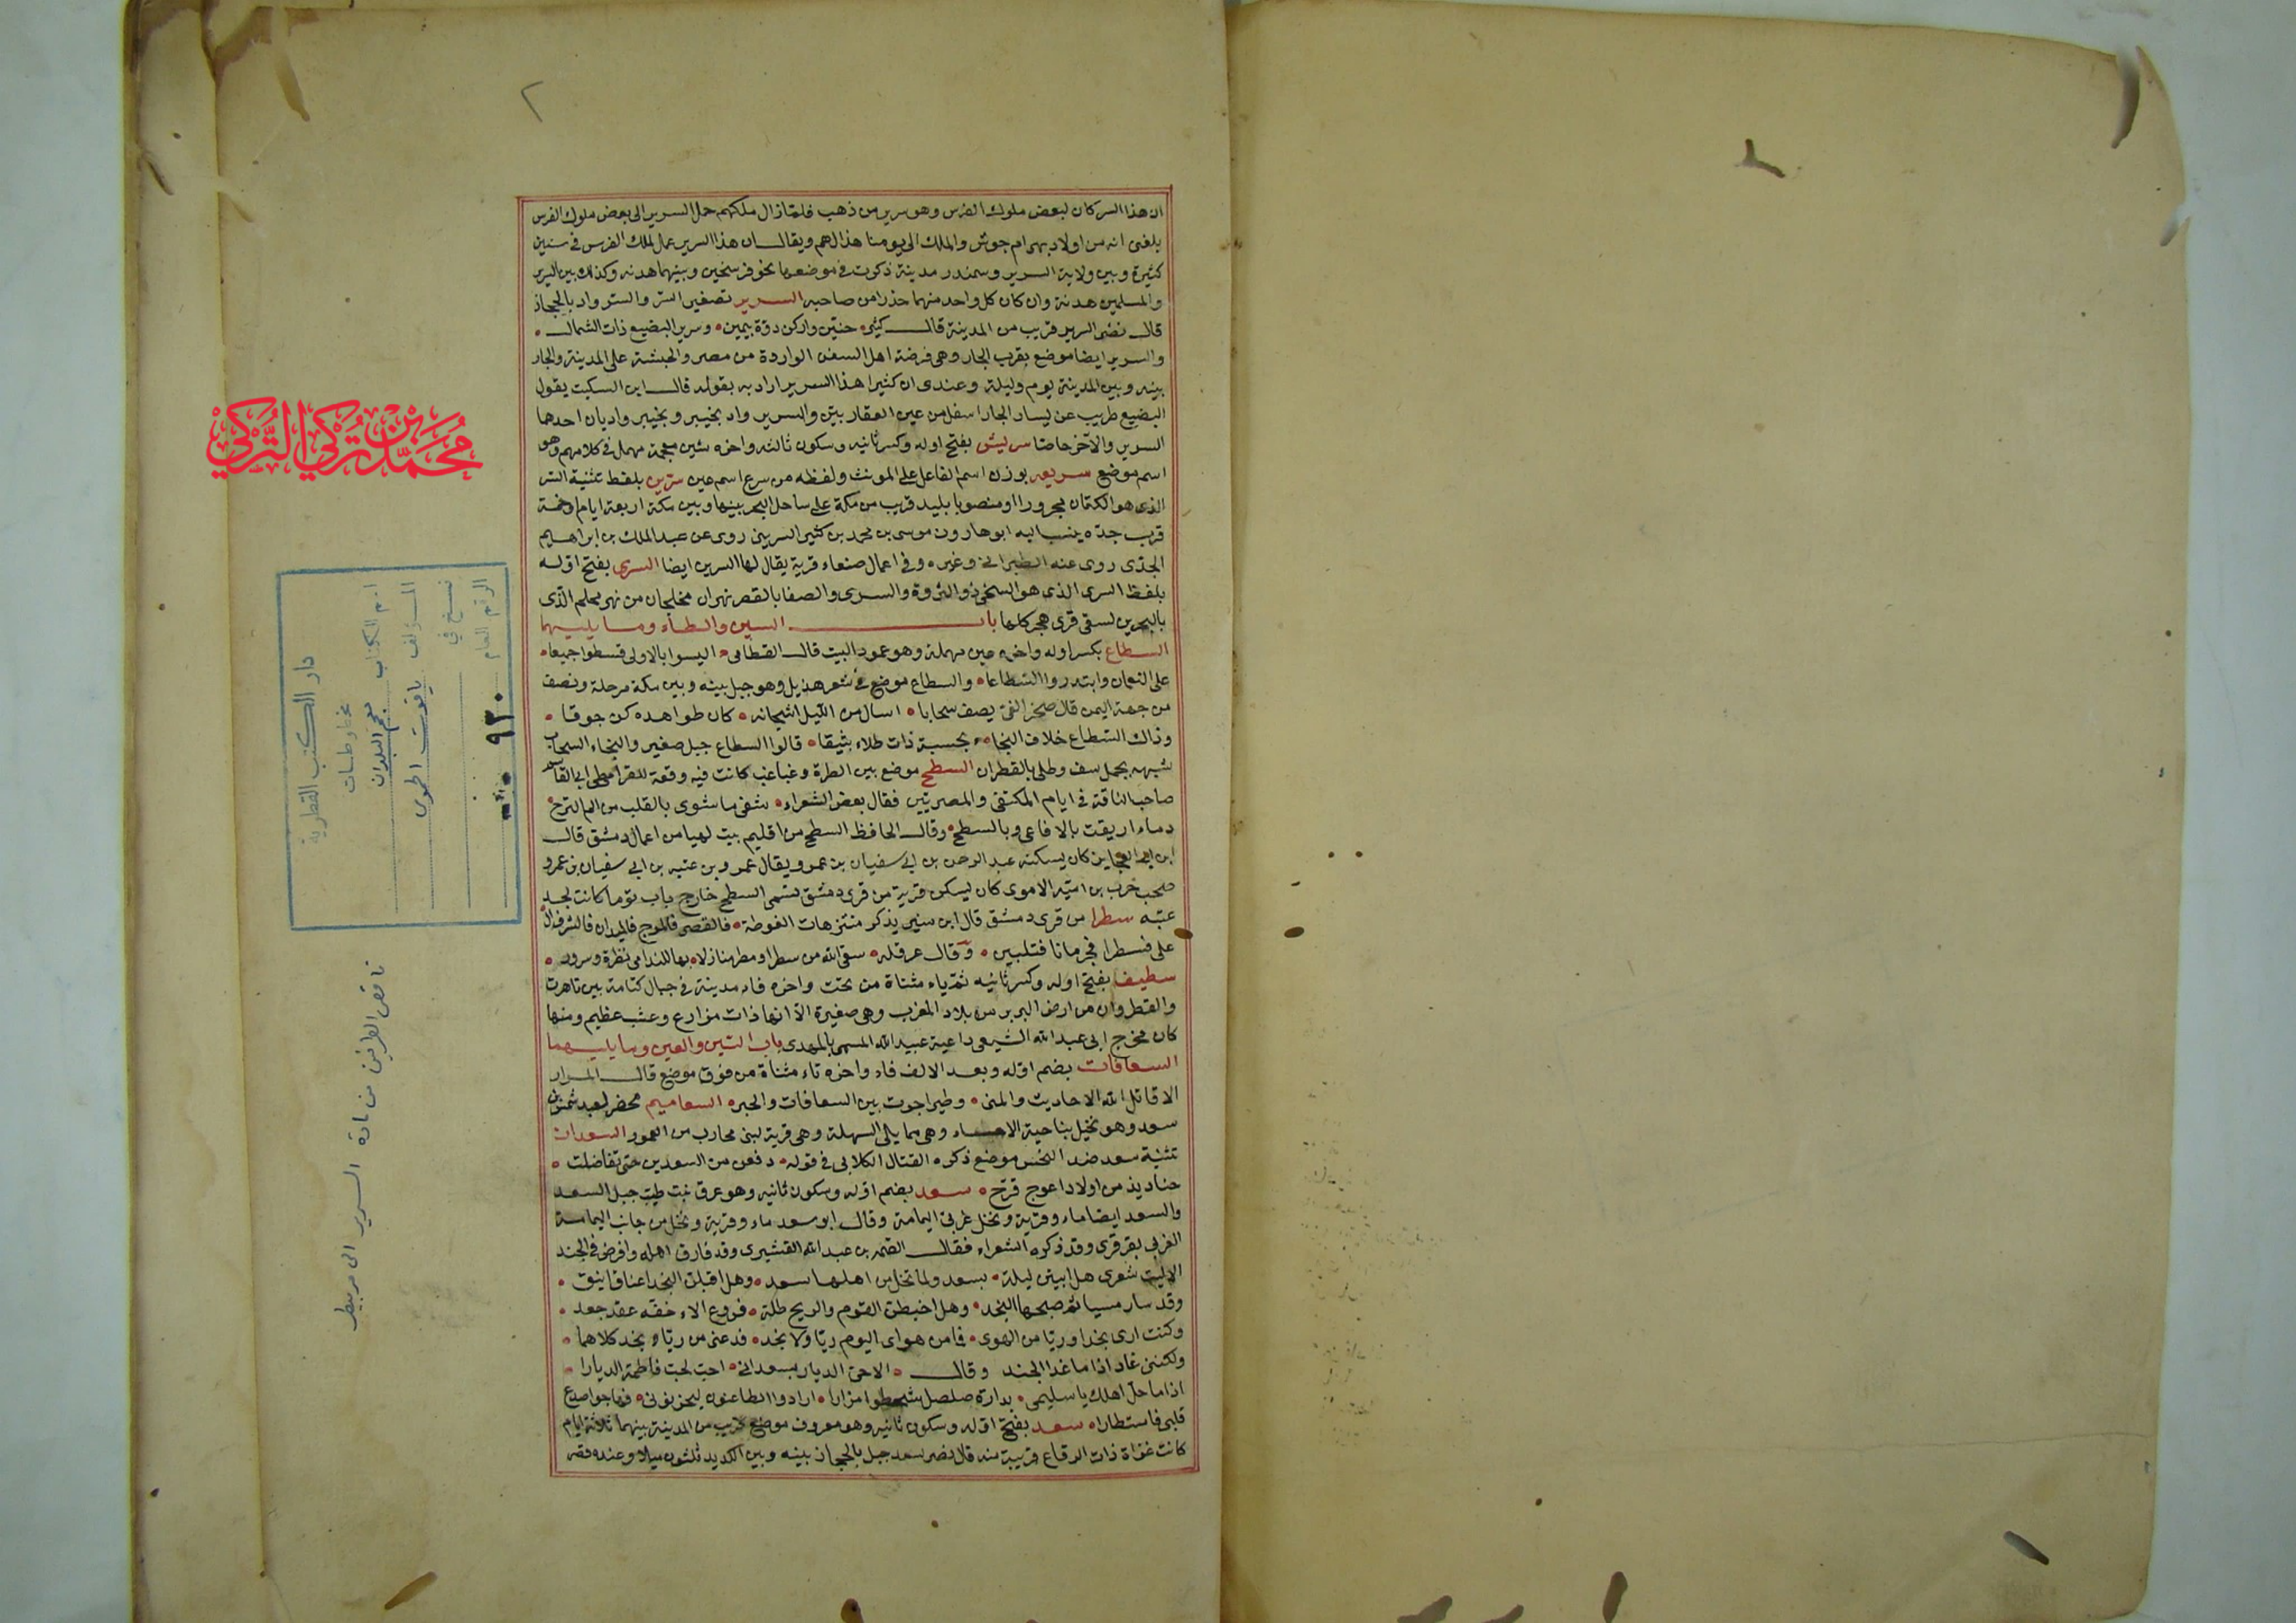 ٢
ان هذا السركان لبعض ملوك الفرس وهو سرير من ذهب فلما زال ملكهم حمل السرير الى بعض ملوك الفرس
بلغنى انه من اولاد بهرام جوش والملك الى يومنا هذا لهم ويقال ان هذا السرير عمل لملك الفرس فى سنين
كثيرة وبين ولاية السرير وسمندر مدينة ذكرت فى موضعها نحو فرسخين وبينهما هدنه وكذلك بين السرير
والمسلمين هدنة وان كان كل واحد منهما حذرا من صاحبه السرير تصغير السر والسر واد بالحجاز
قال نصر السرير قريب من المدينة قال كثير حنين واركن دوة بيمين وسرير البضيع ذات الشمال
والسرير ايضا موضع بقرب الجار وهى فرضة اهل السفن الواردة من مصر والحبشة على المدينة والجار
بينه وبين المدينة يوم وليلة وعندى ان كثيرا هذا السرير اراد به بقوله قال ابن السكيت يقول
البضيع ظريب عن يسار الجار اسفل من عين الغفاريين والسرير واد بخيبر وبخيبر واديان احدهما
السرير والآخر خاصا سريش بفتح اوله وكسر ثانيه وسكون ثالثه واخره شين معجمة مهمل فى كلامهم وهو
اسم موضع سريعه بوزن اسم الفاعل على المونث ولفظه من سرع اسم عين سرين بلفظ تثنية السر
الذى هو الكتمان مجرورا او منصوبا بليد قريب من مكة على ساحل البحر بينها وبين مكة اربعة ايام او خمسة
قرب جدة ينسب اليه ابو هارون موسى بن محمد بن كثير السرينى روى عن عبد الملك بن ابراهيم
الجدى روى عنه الطبرانى وغيره وفى اعمال صنعاء قرية يقال لها السرين ايضا السرى بفتح اوله
بلفظ السرى الذى هو السخى ذو الثروة والسرى والصفا بالقصر نهران مخلجان من نهر محلم الذى
بالبحرين لسقى قرى هجر كلها باب السين والطاء وما يليهما
السطاع بكسر اوله واخره عين مهملة وهو عمود البيت قال القطامى اليسوا بالاولى قسطوا جميعا
على النعمان وابتدروا السطاعا والسطاع موضع فى شعر هذيل وهو جبل بينه وبين مكة مرحلة ونصف
من جهة اليمن قال صخر الغى يصف سحابا اسال من الليل اشجانه كان ظواهره كن جوفا
وذاك السطاع خلاف النجاء تحسبه ذات طلاء نتيقا قالوا السطاع جبل صغير والنجاء السحاب
شبهه بجمل سف وطلى بالقطران السطح موضع بين الطرة وغباغب كانت فيه وقعة للقرامطى ابى القاسم
صاحب الناقة فى ايام المكتفى والمصريين فقال بعض الشعراء شفى ما شوى بالقلب من الم الترح
دماء اريقت بالافاعى وبالسطح وقال الحافظ السطح من اقليم بيت لهيا من اعمال دمشق قال
ابن ابى العجاين كان يسكنه عبد الرحمن بن ابى سفيان بن عمرو ويقال عمرو بن عتبه بن ابى سفيان بن عمرو
صخر بن حرب بن امية الاموى كان يسكن قرية من قرى دمشق تسمى السطح خارج باب توما كانت لجده
عتبه سطرا من قرى دمشق قال ابن منير يذكر منتزهات الغوطة فالقصر فالمرج فالميدان فالشرف ال
على فسطرا فجرمانا فقلبين وقال عرقله سقى الله من سطرا ومطر منازلا بها للندامى نظرة وسرور
سطيف بفتح اوله وكسر ثانيه ثم ياء مثناة من تحت واخره فاء مدينة فى جبال كتامة بين تاهرت
والقيروان من ارض البربر من بلاد المغرب وهى صغيرة الا انها ذات مزارع وعشب عظيم ومنها
كان مخرج ابى عبد الله الشيعى داعية عبيد الله المسمى بالمهدى باب السين والعين وما يليهما
السعافات بضم اوله وبعد الالف فاء واخره تاء مثناة من فوق موضع قال المرار
الا قاتل الله الاحاديث والمنى وطيرا جرت بين السعافات والحبر السعاميم محضر لعبد شمس بن
سعد وهو نخيل بناحية الاحساء وهى مما يلى السهلة وهى قرية لبنى محارب من العمور السعدان
تثنية سعد ضد النحس موضع ذكره القتال الكلابى فى قوله دفعن من السعدين حتى تفاضلت
خناذيذ من اولاد اعوج قرح سعد بضم اوله وسكون ثانيه وهو عرق نبت طيب جبل السعد
والسعد ايضا ماء وقرية ونخل غربى اليمامة وقال ابو سعد ماء وقرية ونخل من جانب اليمامة
الغربى بقرقرى وقد ذكره الشعراء فقال الصمه بن عبد الله القشيرى وقد فارق اهله وافرض فى الجند
الا ليت شعرى هل ابيتن ليلة بسعد ولما تخل من اهلها سعد وهل اقبلن النجد اعناق اينق
وقد سار مسيا ثم صبحها النجد وهل اخبطن القوم والريح طلة فروع الاء حفه عقد جعد
وكنت ارى نجدا وريا من الهوى فما من هواى اليوم ريا ولا نجد فدعنى من ريا ونجد كلاهما
ولكننى غاد اذا ما غدا الجند وقال الا حى الديار بسعد انى احب لحب فاطمة الديارا
اذا ما حل اهلك يا سليمى بدارة صلصل شحطوا مزارا ارادوا الظاعنون ليحزنونى فهاجوا صدع
قلبى فاستطارا سعد بفتح اوله وسكون ثانيه وهو معروف موضع قريب من المدينة بينهما ثلاثة ايام
كانت غزاة ذات الرقاع قريبة منه قال نصر سعد جبل بالحجاز بينه وبين الكديد ثلثون ميلا وعنده قصر
محمد بن تركي التركي
دار الكتب القطرية
مخطوطات
اسم الكتاب معجم البلدان
المؤلف ياقوت الحموى
نسخ في
الرقم العام ٩٣٠
ناقص الطرفين من مادة السرير الى مربيط